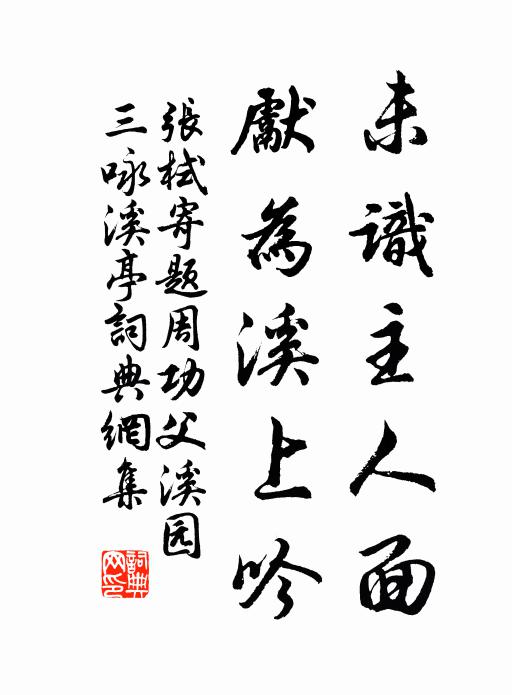 未識主人面
獻為溪上吟
張栻寄題周功父溪园
三咏溪亭詞典網集
詞典
网印